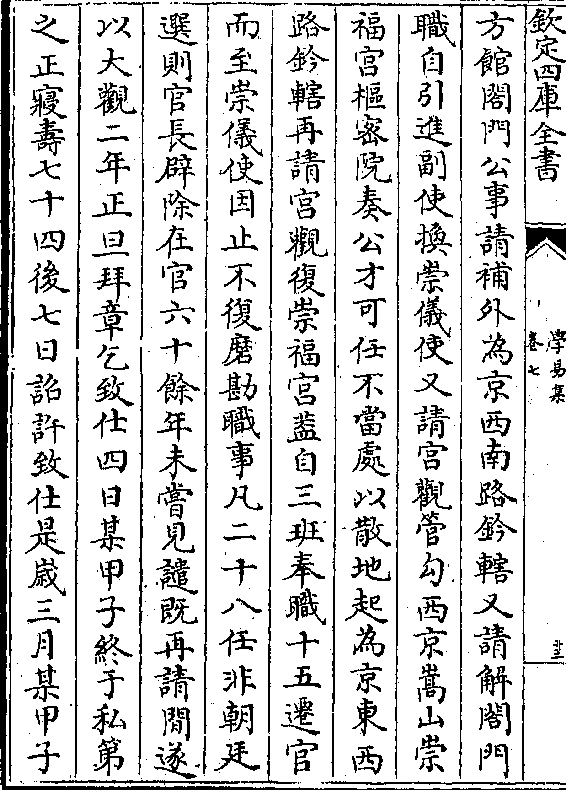 欽定四庫全書
學易集
卷七
方館閣門公事請補外為京西南路鈐轄又請解閣門
職自引進副使換崇儀使又請宮觀管勾西京嵩山崇
福宮樞密院奏公才可任不當處以散地起為京東西
路鈐轄再請宮觀復崇福宮葢自三班奉職十五遷官
而至崇儀使因止不復磨勘職事凡二十八任非朝廷
選則官長辟除在官六十餘年未嘗見譴既再請閒遂
以大觀二年正旦拜章乞致仕四日某甲子終于私第
之正寢壽七十四後七日詔許致仕是嵗三月某甲子